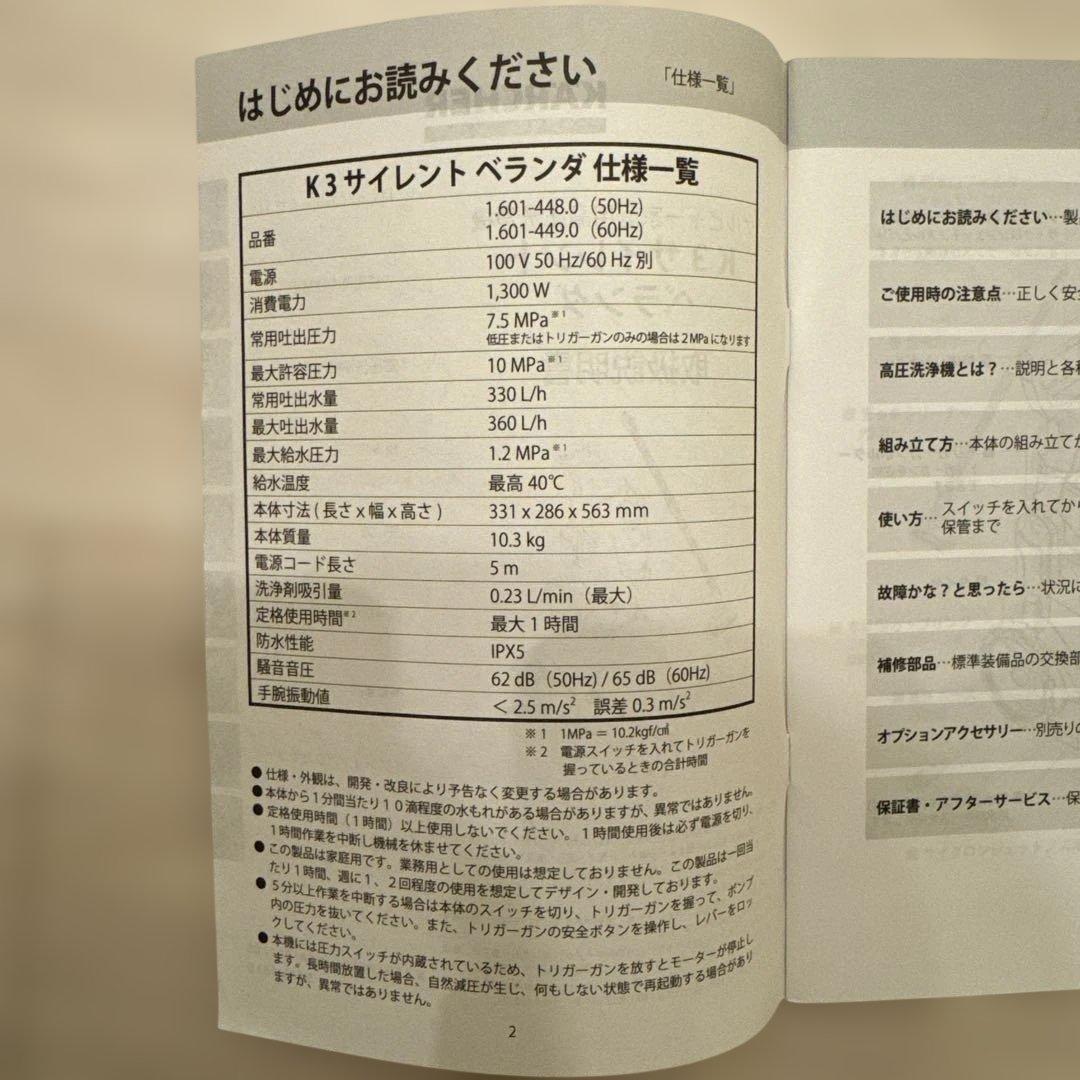 はじめにお読みください
「仕様一覧」
K3サイレント ベランダ 仕様一覧
品番 1.601-448.0（50Hz）
1.601-449.0（60Hz）
電源 100 V 50 Hz/60 Hz 別
消費電力 1,300 W
常用吐出圧力 7.5 MPa※1
低圧またはトリガーガンのみの場合は2MPaになります
最大許容圧力 10 MPa※1
常用吐出水量 330 L/h
最大吐出水量 360 L/h
最大給水圧力 1.2 MPa※1
給水温度 最高 40℃
本体寸法 ( 長さ x 幅 x 高さ ) 331 x 286 x 563 mm
本体質量 10.3 kg
電源コード長さ 5 m
洗浄剤吸引量 0.23 L/min（最大）
定格使用時間※2 最大 1 時間
防水性能 IPX5
騒音音圧 62 dB（50Hz) / 65 dB（60Hz)
手腕振動値 ＜ 2.5 m/s² 誤差 0.3 m/s²
※1 1MPa = 10.2kgf/㎠
※2 電源スイッチを入れてトリガーガンを
握っているときの合計時間
●仕様・外観は、開発・改良により予告なく変更する場合があります。
●本体から1分間当たり10滴程度の水もれがある場合がありますが、異常ではありません。
●定格使用時間（1時間）以上使用しないでください。1時間使用後は必ず電源を切り、
1時間作業を中断し機械を休ませてください。
●この製品は家庭用です。業務用としての使用は想定しておりません。この製品は一回当
たり1時間、週に1、2回程度の使用を想定してデザイン・開発しております。
●5分以上作業を中断する場合は本体のスイッチを切り、トリガーガンを握って、ポンプ
内の圧力を抜いてください。また、トリガーガンの安全ボタンを操作し、レバーをロッ
クしてください。
●本機には圧力スイッチが内蔵されているため、トリガーガンを放すとモーターが停止し
ます。長時間放置した場合、自然減圧が生じ、何もしない状態で再起動する場合があり
ますが、異常ではありません。
2
はじめにお読みください…製
ご使用時の注意点…正しく安全
高圧洗浄機とは？…説明と各種
組み立て方…本体の組み立てか
使い方…スイッチを入れてから
保管まで
故障かな？と思ったら…状況に
補修部品…標準装備品の交換部
オプションアクセサリー…別売りの
保証書・アフターサービス…保